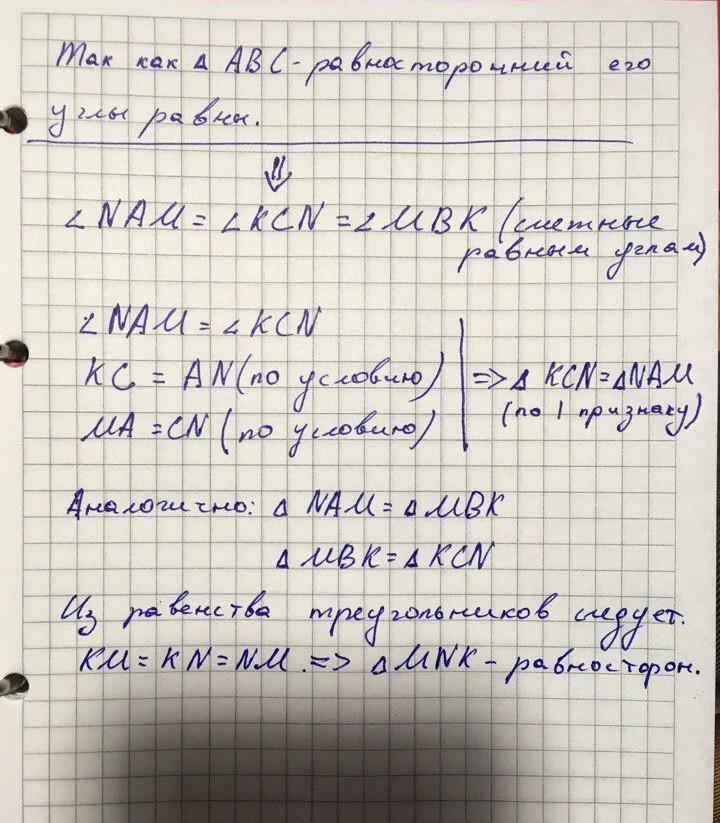 Так как Δ ABC - равносторонний его
углы равны.
⇓
∠NAM = ∠KCN = ∠MBK (смежные
равным углам)
∠NAM = ∠KCN
KC = AN (по условию) => Δ KCN = ΔNAM
MA = CN (по условию) (по 1 признаку)
Аналогично: Δ NAM = Δ MBK
Δ MBK = Δ KCN
Из равенства треугольников следует.
KM = KN = NM. => Δ MNK - равносторон.